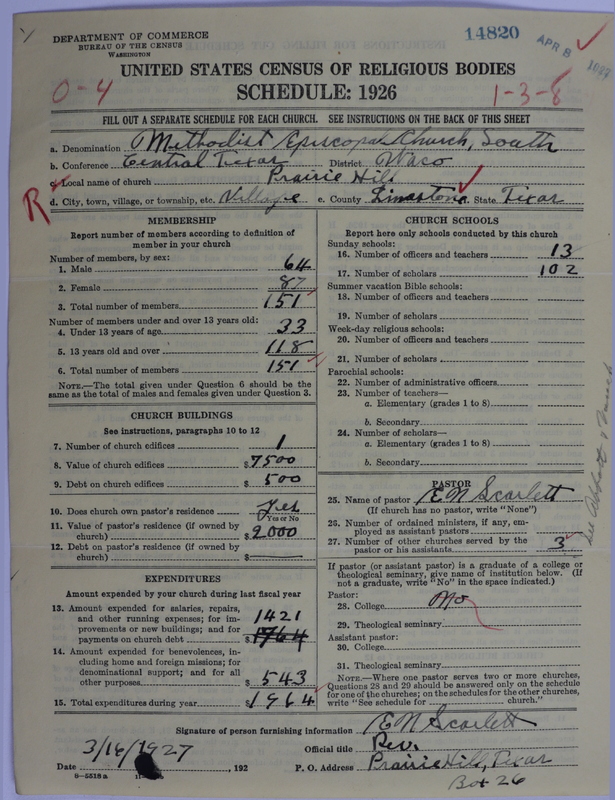 14820
APR 8 1927
DEPARTMENT OF COMMERCE
BUREAU OF THE CENSUS
WASHINGTON
UNITED STATES CENSUS OF RELIGIOUS BODIES
SCHEDULE: 1926
0-4
1-3-8
FILL OUT A SEPARATE SCHEDULE FOR EACH CHURCH. SEE INSTRUCTIONS ON THE BACK OF THIS SHEET
a. Denomination Methodist Episcopal Church, South
b. Conference Central Texas District Waco
c. Local name of church Prairie Hill
R
d. City, town, village, or township, etc. Village e. County Limestone State Texas
MEMBERSHIP
Report number of members according to definition of
member in your church
Number of members, by sex:
1. Male 64
2. Female 87
3. Total number of members 151
Number of members under and over 13 years old:
4. Under 13 years of age 33
5. 13 years old and over 118
6. Total number of members 151
NOTE.—The total given under Question 6 should be
same as the total of males and females given under Question 3.
CHURCH BUILDINGS
See instructions, paragraphs 10 to 12
7. Number of church edifices 1
8. Value of church edifices $7500
9. Debt on church edifices $500
10. Does church own pastor's residence Yes
Yes or No
11. Value of pastor's residence (if owned by
church) $2000
12. Debt on pastor's residence (if owned by
church) $
EXPENDITURES
Amount expended by your church during last fiscal year
13. Amount expended for salaries, repairs,
and other running expenses; for im-
provements or new buildings; and for
payments on church debt 1421 $1764
14. Amount expended for benevolences, in-
cluding home and foreign missions; for
denominational support; and for all
other purposes $543
15. Total expenditures during year $1964
CHURCH SCHOOLS
Report here only schools conducted by this church
Sunday schools:
16. Number of officers and teachers 13
17. Number of scholars 102
Summer vacation Bible schools:
18. Number of officers and teachers
19. Number of scholars
Week-day religious schools:
20. Number of officers and teachers
21. Number of scholars
Parochial schools:
22. Number of administrative officers
23. Number of teachers—
a. Elementary (grades 1 to 8)
b. Secondary
24. Number of scholars—
a. Elementary (grades 1 to 8)
b. Secondary
PASTOR
25. Name of pastor E N Scarlett
(If church has no pastor, write "None")
26. Number of ordained ministers, if any, em-
ployed as assistant pastors
27. Number of other churches served by the
pastor or his assistants 3
If pastor (or assistant pastor) is a graduate of a college or
theological seminary, give name of institution below. (If
not a graduate, write "No" in the space indicated.)
Pastor:
28. College No
29. Theological seminary
Assistant pastor:
30. College
31. Theological seminary
NOTE.—Where one pastor serves two or more churches,
Questions 28 and 29 should be answered only on the schedule
for one of the churches; on the schedules for the other churches,
write "See schedule for church."
Signature of person furnishing information E N Scarlett
Official title Rev.
3/16/1927
Date , 192 P. O. Address Prairie Hill, Texas
Box 26
6—5518a